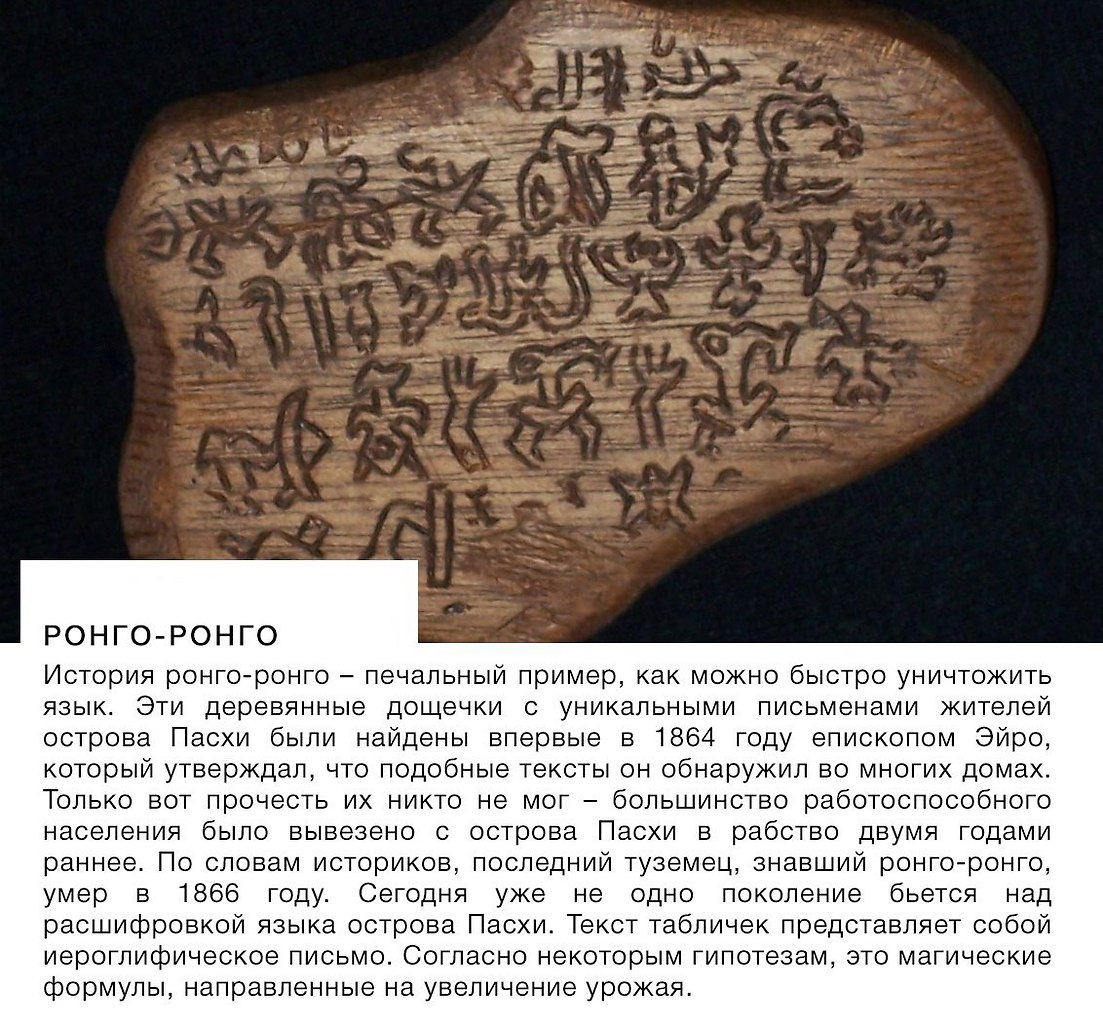 РОНГО-РОНГО
История ронго-ронго – печальный пример, как можно быстро уничтожить
язык. Эти деревянные дощечки с уникальными письменами жителей
острова Пасхи были найдены впервые в 1864 году епископом Эйро,
который утверждал, что подобные тексты он обнаружил во многих домах.
Только вот прочесть их никто не мог – большинство работоспособного
населения было вывезено с острова Пасхи в рабство двумя годами
раннее. По словам историков, последний туземец, знавший ронго-ронго,
умер в 1866 году. Сегодня уже не одно поколение бьется над
расшифровкой языка острова Пасхи. Текст табличек представляет собой
иероглифическое письмо. Согласно некоторым гипотезам, это магические
формулы, направленные на увеличение урожая.